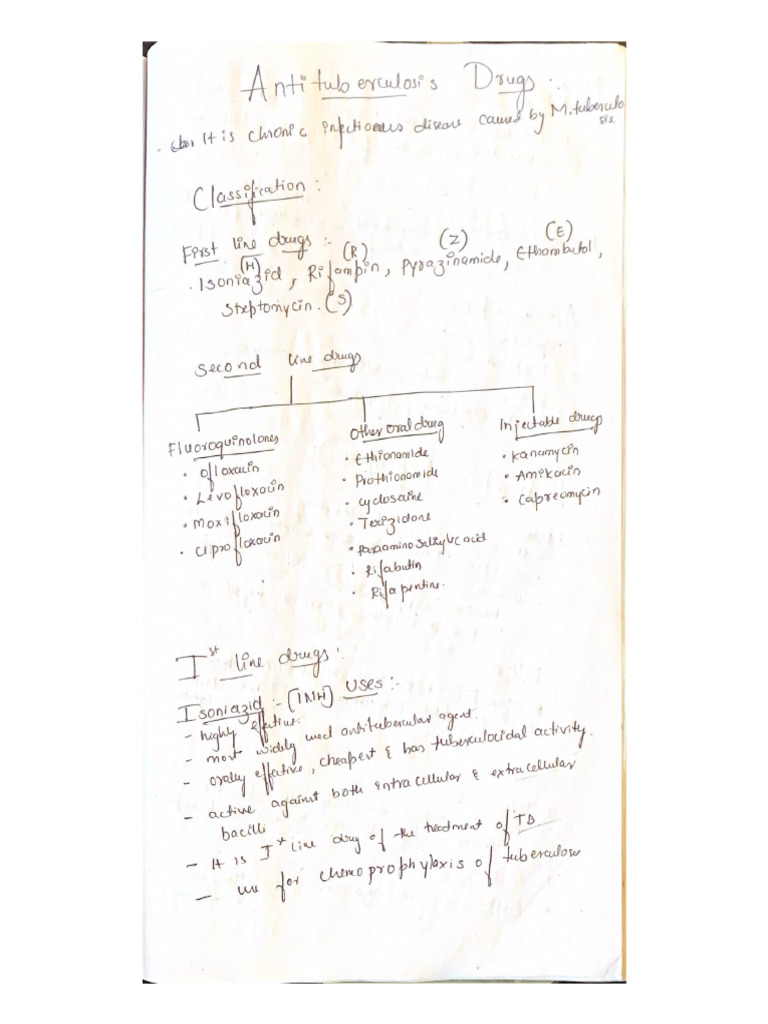 Antituberculosis Drugs :
. It is chronic infectious disease caused by M.tuberculo
sis.
Classification :
First line drugs :-
(H) (R) (Z) (E)
. Isoniazid, Rifampin, Pyrazinamide, Ethambutol,
Streptomycin. (S)
Second line drugs
Fluoroquinolones
• Ofloxacin
• Levofloxacin
• Moxifloxacin
• Ciprofloxacin
Other oral drug
• Ethionamide
• Prothionamide
• Cyclosaine
• Terizidone
• Paraamino Salicylic acid
• Rifabutin
• Rifapentine.
Injectable drugs
• Kanamycin
• Amikacin
• Capreomycin
Ist line drugs :
Isoniazid :- (INH) Uses :-
- highly effective.
- most widely used antitubercular agent.
- orally effective, cheapest & has tuberculocidal activity.
- active against both intracellular & extracellular
bacilli
- It is Ist line drug of the treatment of TB
- use for chemoprophylaxis of tuberculosis